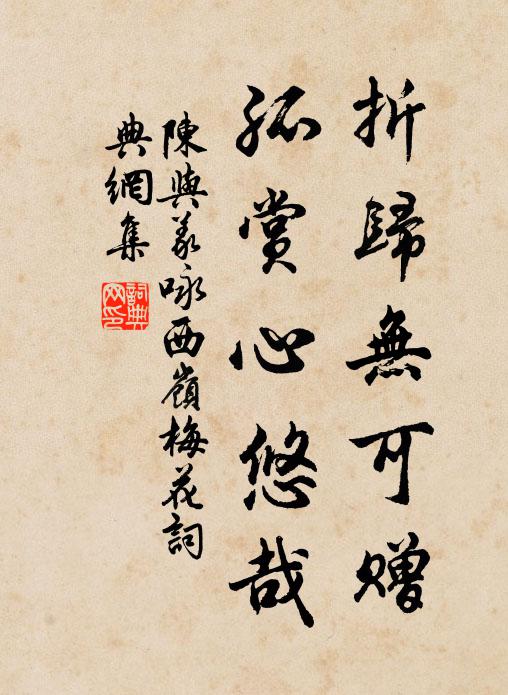 折歸無可贈
孤賞心悠哉
陳與義詠西嶺梅花詞
典網集
詞典
网印